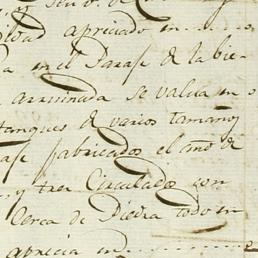 apreciado en
en el Parage de la bie-
arruinada se valua en
tanques de varios tamaños
fabricados el año de
y tres Circulado con
Cerca de Piedra todo en
aprecia en